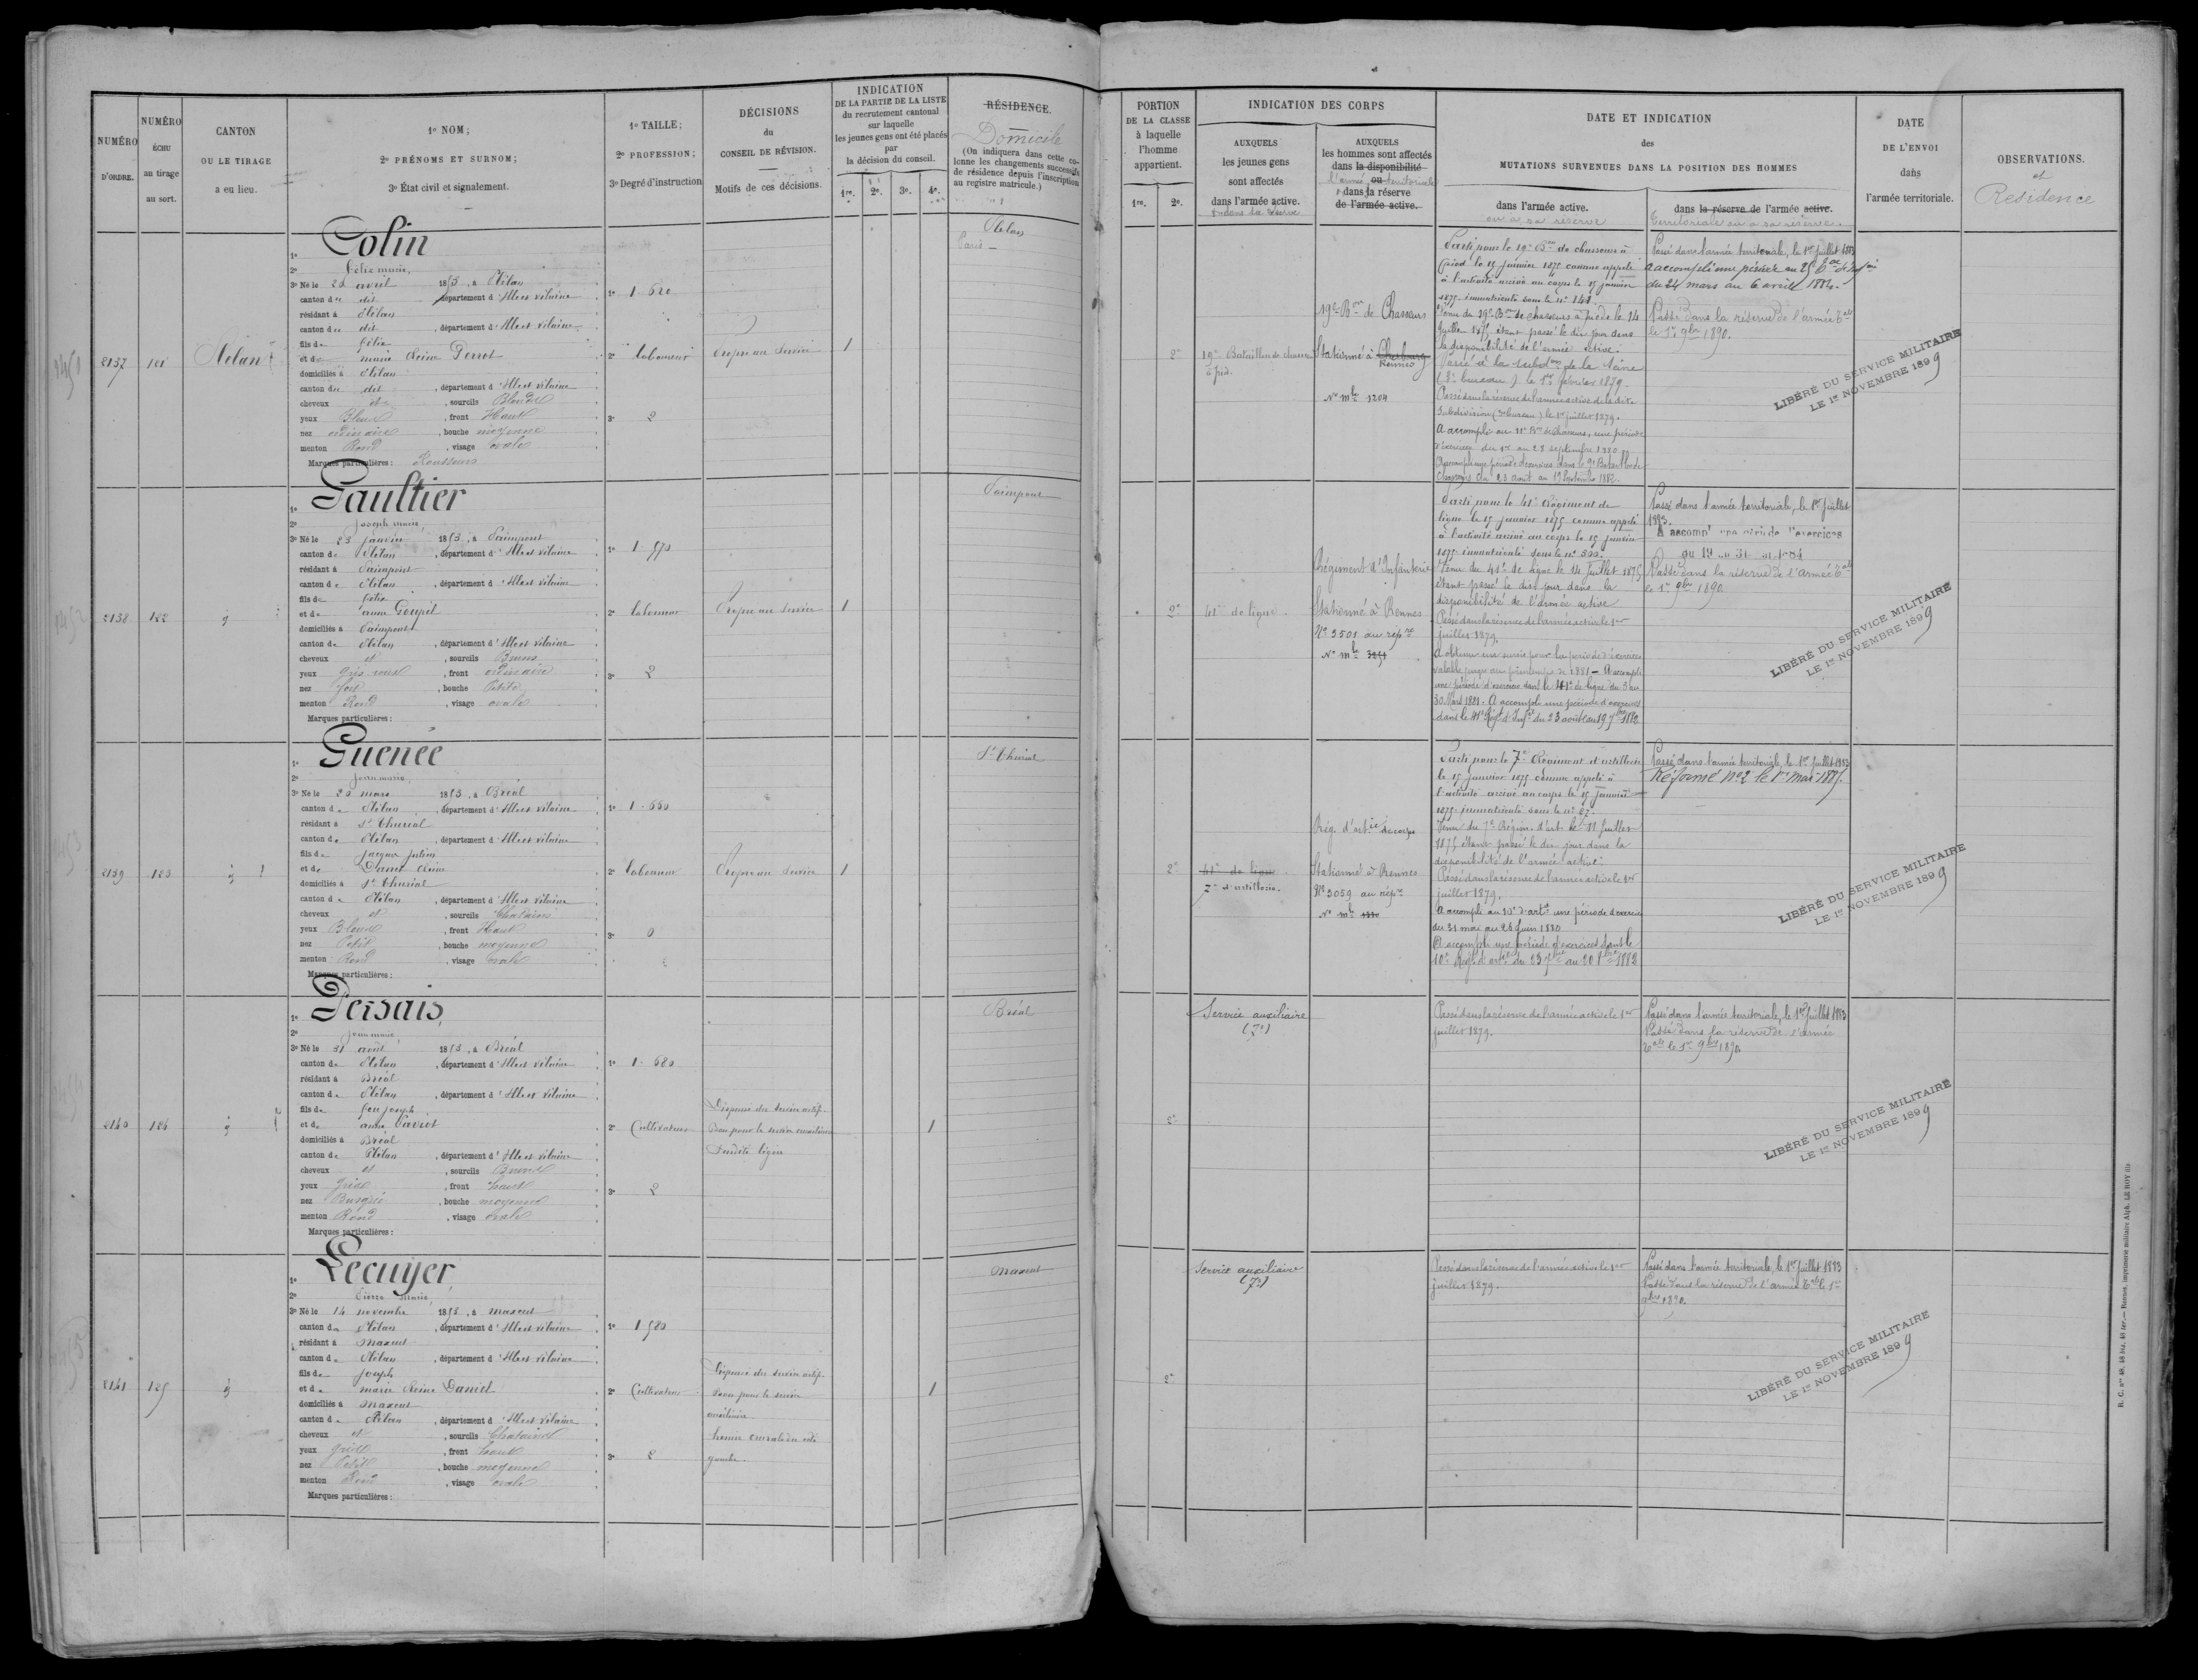 NUMÉRO
D'ORDRE.
NUMÉRO
ÉCHU
au tirage
au sort.
CANTON
OU LE TIRAGE
a eu lieu.
1º NOM;
2º PRÉNOMS ET SURNOM;
3º État civil et signalement.
1º TAILLE;
2º PROFESSION;
3º Degré d'instruction
DÉCISIONS
du
CONSEIL DE RÉVISION.
Motifs de ces décisions.
INDICATION
DE LA PARTIE DE LA LISTE
du recrutement cantonal
sur laquelle
les jeunes gens ont été placés
par
la décision du conseil.
1re. 2e. 3e. 4e.
RÉSIDENCE.
Domicile
(On indiquera dans cette co-
lonne les changements successifs
de résidence depuis l'inscription
au registre matricule.)
2137
121
Plélan
Colin
2º Félix marie,
3º Né le 20 avril 1853, à Plélan
canton du dit, département d'Ille et Vilaine
résidant à Plélan
canton du dit, département d'Ille et Vilaine
fils de Félix
et de marie Reine Perrot
domiciliés à Plélan
canton du dit, département d'Ille et Vilaine
cheveux et, sourcils Blonds
yeux Bleus, front Haut
nez ordinaire, bouche moyenne
menton Rond, visage ovale
Marques particulières: Rousseurs
1º 1. 620
2º laboureur
3º 2
Propre au service
1
Plélan
Paris
2138
122
Gaultier
2º Joseph marie,
3º Né le 23 janvier 1853, à Paimpont
canton de Plélan, département d'Ille et Vilaine
résidant à Paimpont
canton de Plélan, département d'Ille et Vilaine
fils de Félix
et de anne Goupil
domiciliés à Paimpont
canton de Plélan, département d'Ille et Vilaine
cheveux et, sourcils Bruns
yeux gris roux, front ordinaire
nez fort, bouche Petite
menton Rond, visage ovale
Marques particulières:
1º 1. 570
2º laboureur
3º 2
Propre au service
1
Paimpont
2139
123
Guenée
2º Jean marie,
3º Né le 20 mars 1853, à Bréal
canton de Plélan, département d'Ille et Vilaine
résidant à St Thurial
canton de Plélan, département d'Ille et Vilaine
fils de Jacques Julien
et de Danet Reine
domiciliés à St Thurial
canton de Plélan, département d'Ille et Vilaine
cheveux et, sourcils Chatains
yeux Bleus, front Haut
nez Petit, bouche moyenne
menton Rond, visage ovale
Marques particulières:
1º 1. 660
2º laboureur
3º 0
Propre au service
1
St Thurial
2140
124
Persais,
2º Jean marie,
3º Né le 31 août 1853, à Bréal
canton de Plélan, département d'Ille et Vilaine
résidant à Bréal
canton de Plélan, département d'Ille et Vilaine
fils de feu Joseph
et de anne
domiciliés à Bréal
canton de Plélan, département d'Ille et Vilaine
cheveux et, sourcils Bruns
yeux gris, front haut
nez Busqué, bouche moyenne
menton Rond, visage ovale
Marques particulières:
1º 1. 680
2º Cultivateur
3º 2
Dispensé du service actif.
Bon pour le service auxiliaire
1
Bréal
2141
125
Lecuyer,
2º Pierre Marie,
3º Né le 14 novembre 1853, à Maxent
canton de Plélan, département d'Ille et Vilaine
résidant à Maxent
canton de Plélan, département d'Ille et Vilaine
fils de Joseph
et de marie Reine Daniel
domiciliés à Maxent
canton de Plélan, département d'Ille et Vilaine
cheveux et, sourcils Chatains
yeux gris, front haut
nez Petit, bouche moyenne
menton Rond, visage ovale
Marques particulières:
1º 1. 580
2º Cultivateur
3º 2
Dispensé du service actif.
Bon pour le service
auxiliaire
hernie crurale du côté
gauche.
1
Maxent
PORTION
DE LA CLASSE
à laquelle
l'homme
appartient.
1re. 2e.
INDICATION DES CORPS
AUXQUELS
les jeunes gens
sont affectés
dans l'armée active.
& dans la réserve
AUXQUELS
les hommes sont affectés
dans la disponibilité
l'armée ou territoriale
& dans la réserve
de l'armée active.
DATE ET INDICATION
des
MUTATIONS SURVENUES DANS LA POSITION DES HOMMES
dans l'armée active.
ou a sa réserve
dans la réserve de l'armée active.
territoriale ou a sa réserve.
DATE
DE L'ENVOI
dans
l'armée territoriale.
OBSERVATIONS.
et
Résidence
2e
19e Bataillon de chasseurs
à pied.
19e Bon de Chasseurs
Stationné à Cherbourg
Rennes
No mle 1204
Parti pour le 19e Bon de chasseurs à
pied le 15 janvier 1875 comme appelé
à l'activité arrivé au corps le 15 janvier
1875 immatriculé sous le no 141.
Venu du 19e Bon de chasseurs à pied le 14
Juillet 1875, étant passé le dit jour dans
la disponibilité de l'armée active.
Passé à la subdon de la Seine
(3e bureau) le 1er février 1879.
Passé dans la réserve de l'armée active de la dite
Subdivision (3e bureau) le 1er juillet 1879.
A accompli au 11e Bon de Chasseurs, une période
d'exercices du 1er au 28 septembre 1880
A accompli une période d'exercices dans le 9e Bataillon de
Chasseurs du 23 août au 19 Septembre 1882.
Passé dans l'armée territoriale, le 1er Juillet 1883
du 24 mars au 6 avril 1884.
Passé dans la réserve de l'armée tale
le 1er 9bre 1890.
LIBÉRÉ DU SERVICE MILITAIRE
LE 1er NOVEMBRE 1899
2e
41e de ligne.
Régiment d'Infanterie
Stationné à Rennes
No 3501 au répre
No mle 3251
Parti pour le 41e Régiment de
ligne le 15 janvier 1875 comme appelé
à l'activité arrivé au corps le 15 janvier
1875 immatriculé sous le no 300.
Venu du 41e de ligne le 14 Juillet 1875,
étant passé le dit jour dans la
disponibilité de l'armée active
Passé dans la réserve de l'armée active le 1er
juillet 1879.
A obtenu un sursis pour la période d'exercices
valable jusqu'au printemps de 1881 - A accompli
une période d'exercices dans le 41e de ligne du 3 au
30 Mars 1881. A accompli une période d'exercices
dans le 41e Régt d'Infie du 23 août au 19 7bre 1882
Passé dans l'armée territoriale, le 1er Juillet
1883.
A accompli une période d'exercices
Passé dans la réserve de l'Armée tale
le 1er 9bre 1890
LIBÉRÉ DU SERVICE MILITAIRE
LE 1er NOVEMBRE 1899
2e
41e de ligne
7e d'artillerie.
Rég. d'artie de corps
Stationné à Rennes
No 3059 au répre
No mle
Parti pour le 7e Régiment d'artillerie
le 15 janvier 1875 comme appelé à
l'activité arrivé au corps le 15 janvier
1875 immatriculé sous le no 27.
Venu du 7e Région. d'art le 11 Juillet
1875, étant passé le dit jour dans la
disponibilité de l'armée active.
Passé dans la réserve de l'armée active le 1er
juillet 1879.
A accompli au 10e d'artie une période d'exercices
du 31 mai au 26 Juin 1880
A accompli une période d'exercices dans le
10e Régt d'artie du 23 7bre au 20 8bre 1882
Passé dans l'armée territoriale, le 1er Juillet 1883
Réformé No 2 le 1er mai 1885.
LIBÉRÉ DU SERVICE MILITAIRE
LE 1er NOVEMBRE 1899
2e
Service auxiliaire
Passé dans la réserve de l'armée active le 1er
juillet 1879.
Passé dans l'armée territoriale, le 1er Juillet 1883
Passé dans la réserve de l'armée
tale le 1er 9bre 1890
LIBÉRÉ DU SERVICE MILITAIRE
LE 1er NOVEMBRE 1899
2e
Service auxiliaire
Passé dans la réserve de l'armée active le 1er
juillet 1879.
Passé dans l'armée territoriale, le 1er Juillet 1883
Passé dans la réserve de l'armée tale le 1er
9bre 1890.
LIBÉRÉ DU SERVICE MILITAIRE
LE 1er NOVEMBRE 1899
R. C. nos 48, 48 bis, 48 ter. — Rennes, imprimerie militaire Alph. LE ROY fils